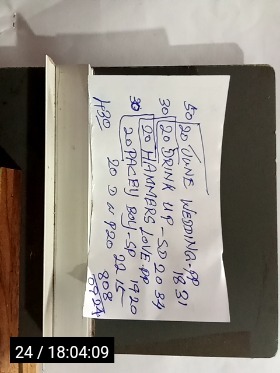 50 20 JUNE WEDDING-PP 1831
30 20 DRINK UP-SD 2034
20 HAMMERS LOVE-PP 1920
30 20 PACEY BOY-SP 2215
20 D M P20 808
4.30
24 / 18:04:09